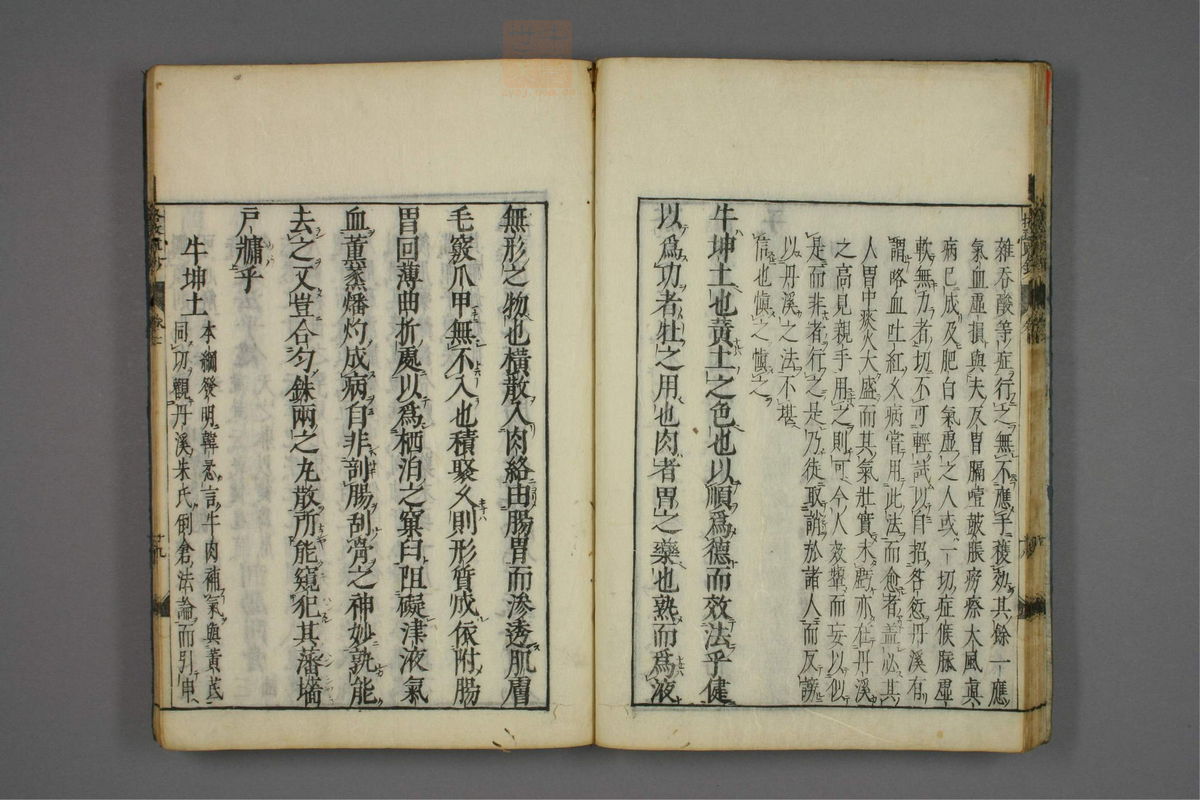 雜吞酸等症行之無不應手獲効其餘一應
氣血虛損與夫反胃膈噎皷脹癆瘵大風真
病已成及肥白氣虛之人或一切症候脈虛
軟無力者切不可輕試以自招咎愆丹溪有
謂略血吐紅久病當用此法而愈者盖必其
人胃中痰火大盛而其氣壯實未虧亦在丹溪
之高見親手用之則可今人效顰而妄以似
是而非者行之是乃徒取謗於諸人而反謗
以丹溪之法不堪
信也慎之慎之
牛坤土也黄土之色也以順爲德而效法乎健
以爲功者牡之用也肉者胃之藥也熟而爲液
無形之物也横散入肉絡由腸胃而滲透肌膚
毛竅爪甲無不入也積聚久則形質成依附腸
胃回薄曲折處以爲栖泊之窠臼阻礙津液氣
血薰蒸燔灼成病自非剖腸刮骨之神妙孰能
去之又豈合勺銖兩之丸散所能窺犯其藩墻
戸牖乎
牛坤土
本綱發明韓𢙢言牛肉補氣與黄芪
同切觀丹溪朱氏倒倉法論而引申